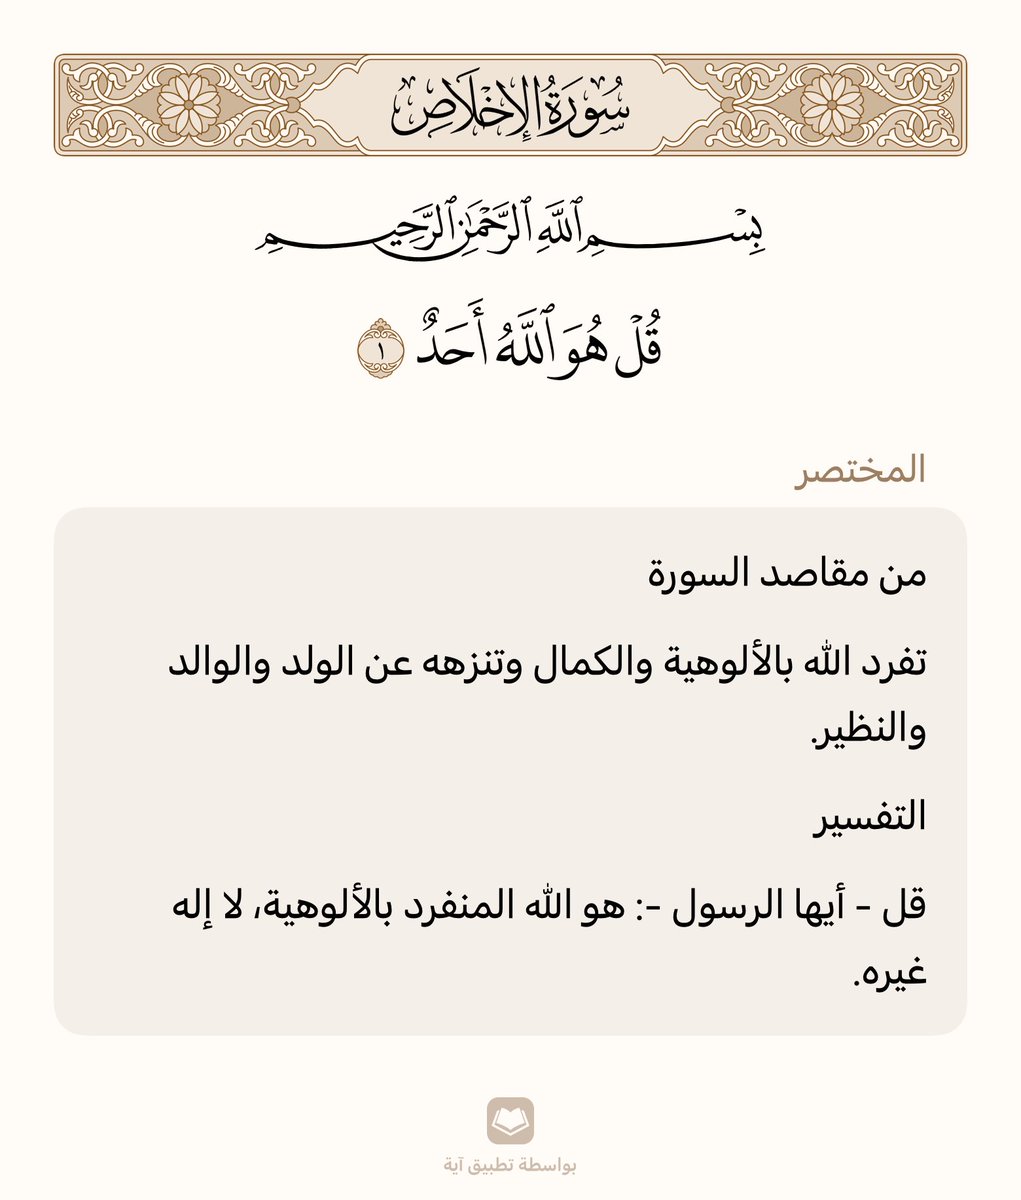 سُورَةُ الإِخْلَاصِ
بِسْمِ ٱللَّهِ ٱلرَّحْمَٰنِ ٱلرَّحِيمِ
قُلْ هُوَ ٱللَّهُ أَحَدٌ ١
المختصر
من مقاصد السورة
تفرد الله بالألوهية والكمال وتنزهه عن الولد والوالد
والنظير.
التفسير
قل - أيها الرسول -: هو الله المنفرد بالألوهية، لا إله
غيره.
بواسطة تطبيق آية